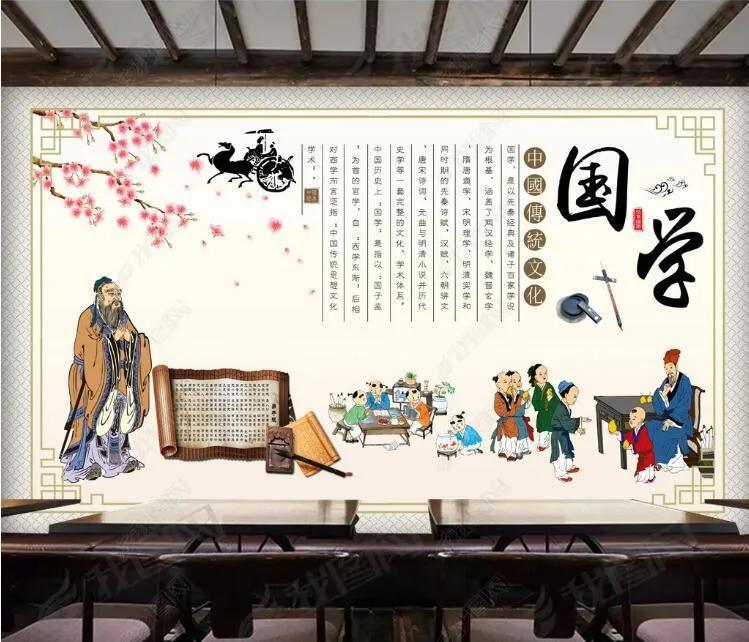 国学
中國傳統文化
国学，是以先秦经典及诸子百家学说
为根基，涵盖了两汉经学、魏晋玄学
、隋唐道学、宋明理学、明清实学和
同时期的先秦诗赋、汉赋、六朝骈文
、唐宋诗词、元曲与明清小说并历代
史学等一套完整的文化、学术体系。
中国历史上“国学”是指以“国子监
”为首的官学，自“西学东渐”后相
对西学而言泛指“中国传统思想文化
学术”。